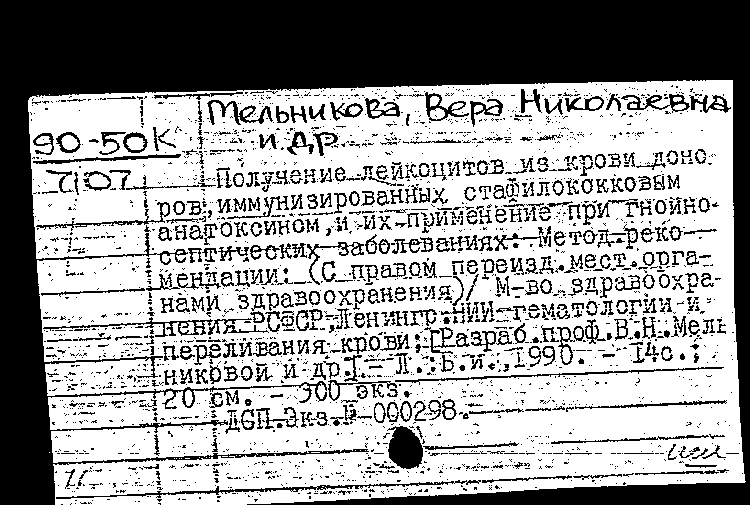 Мельникова, Вера Николаевна
90-50К
и др
7107
Получение лейкоцитов из крови доно
ров, иммунизированных стафилококковым
анатоксином, и их применение при гнойно-
септических заболеваниях: Метод.реко-
мендации: (С правом переизд.мест.орга-
нами здравоохранения)/ М-во здравоохра-
нения РСФСР, Ленингр.НИИ гематологии и
переливания крови; [Разраб.проф.В.Н.Мель
никовой и др.]. - Л.:Б.и.,1990. - 14с.;
20 см. - 300 экз.
ДСП.Экз.№ 000298.